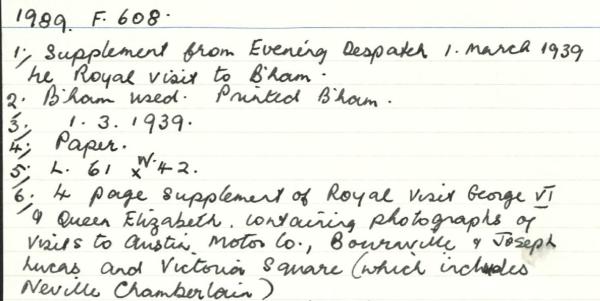 1989. F. 608.
1; Supplement from Evening Despatch 1. March 1939
he Royal visit to B'ham.
2. B'ham used. Printed B'ham.
3; 1. 3. 1939.
4; Paper.
5; L. 61 x W. 42.
6. 4 page supplement of Royal Visit George VI
& Queen Elizabeth. containing photographs of
visits to Austin Motor Co., Bournville & Joseph
Lucas and Victoria Square (which includes
Neville Chamberlain)